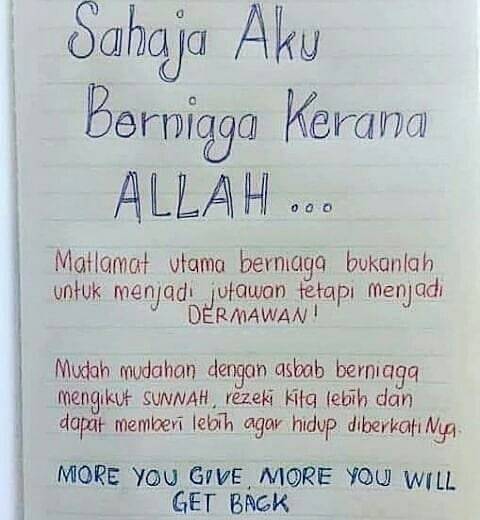 Sahaja Aku
Berniaga Kerana
ALLAH ...
Matlamat utama berniaga bukanlah
untuk menjadi jutawan tetapi menjadi
DERMAWAN!
Mudah mudahan dengan asbab berniaga
mengikut SUNNAH, rezeki kita lebih dan
dapat memberi lebih agar hidup diberkatiNya.
MORE YOU GIVE, MORE YOU WILL
GET BACK